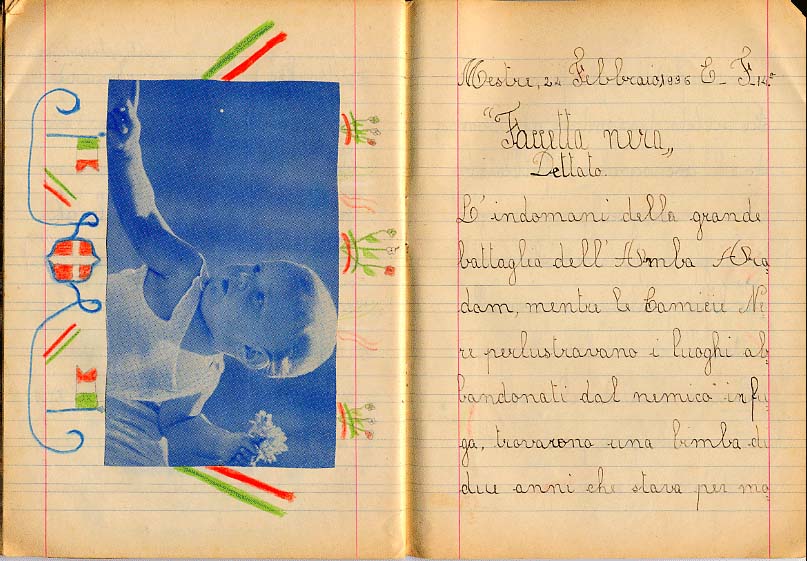 Mestre, 24 Febbraio, 1936 E- F. 14°
"Faccetta nera„
Dettato.
L'indomani della grande
battaglia dell'Armba Ara-
dam, mentre le Camicie Ne-
re perlustravano i luoghi ab-
bandonati dal nemico in fu-
ga, trovarono una bimba di
due anni che stava per mo-